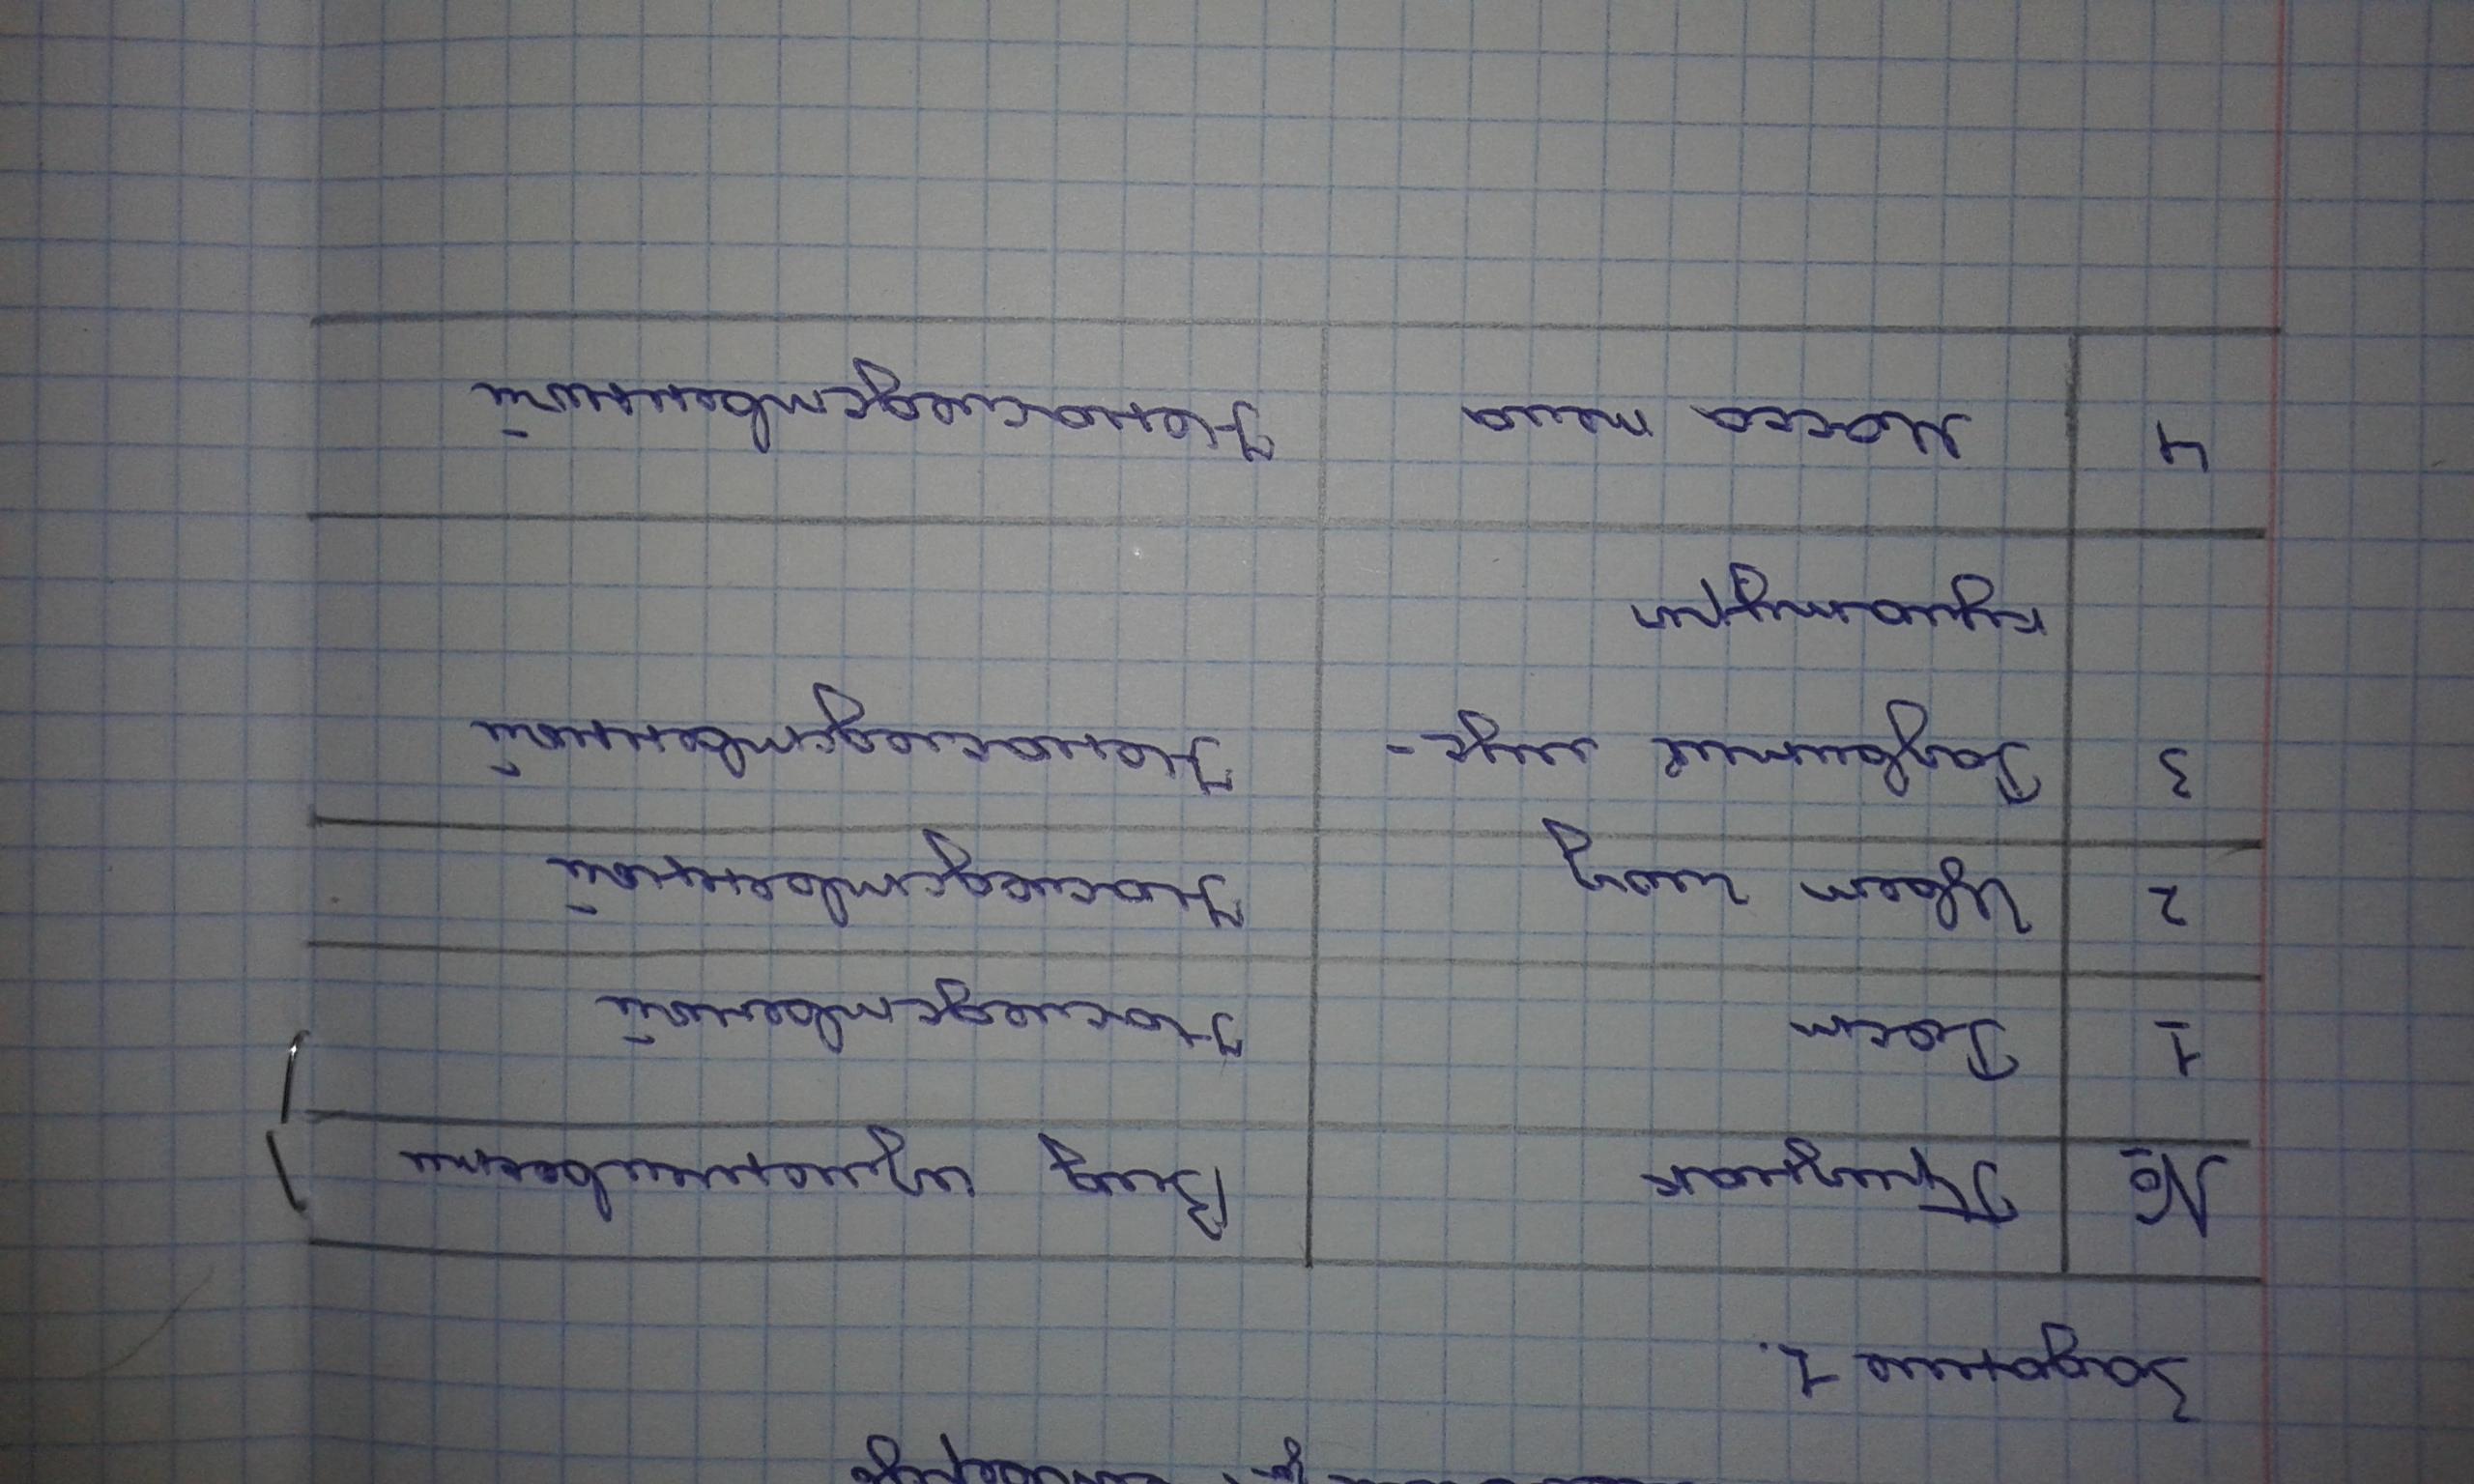 Задание 1.
№ Признак Вид изменчивости
1 Рост Наследственный
2 Цвет глаз Наследственный
3 Развитие мус- Ненаследственный
кулатуры
4 Масса тела Ненаследственный